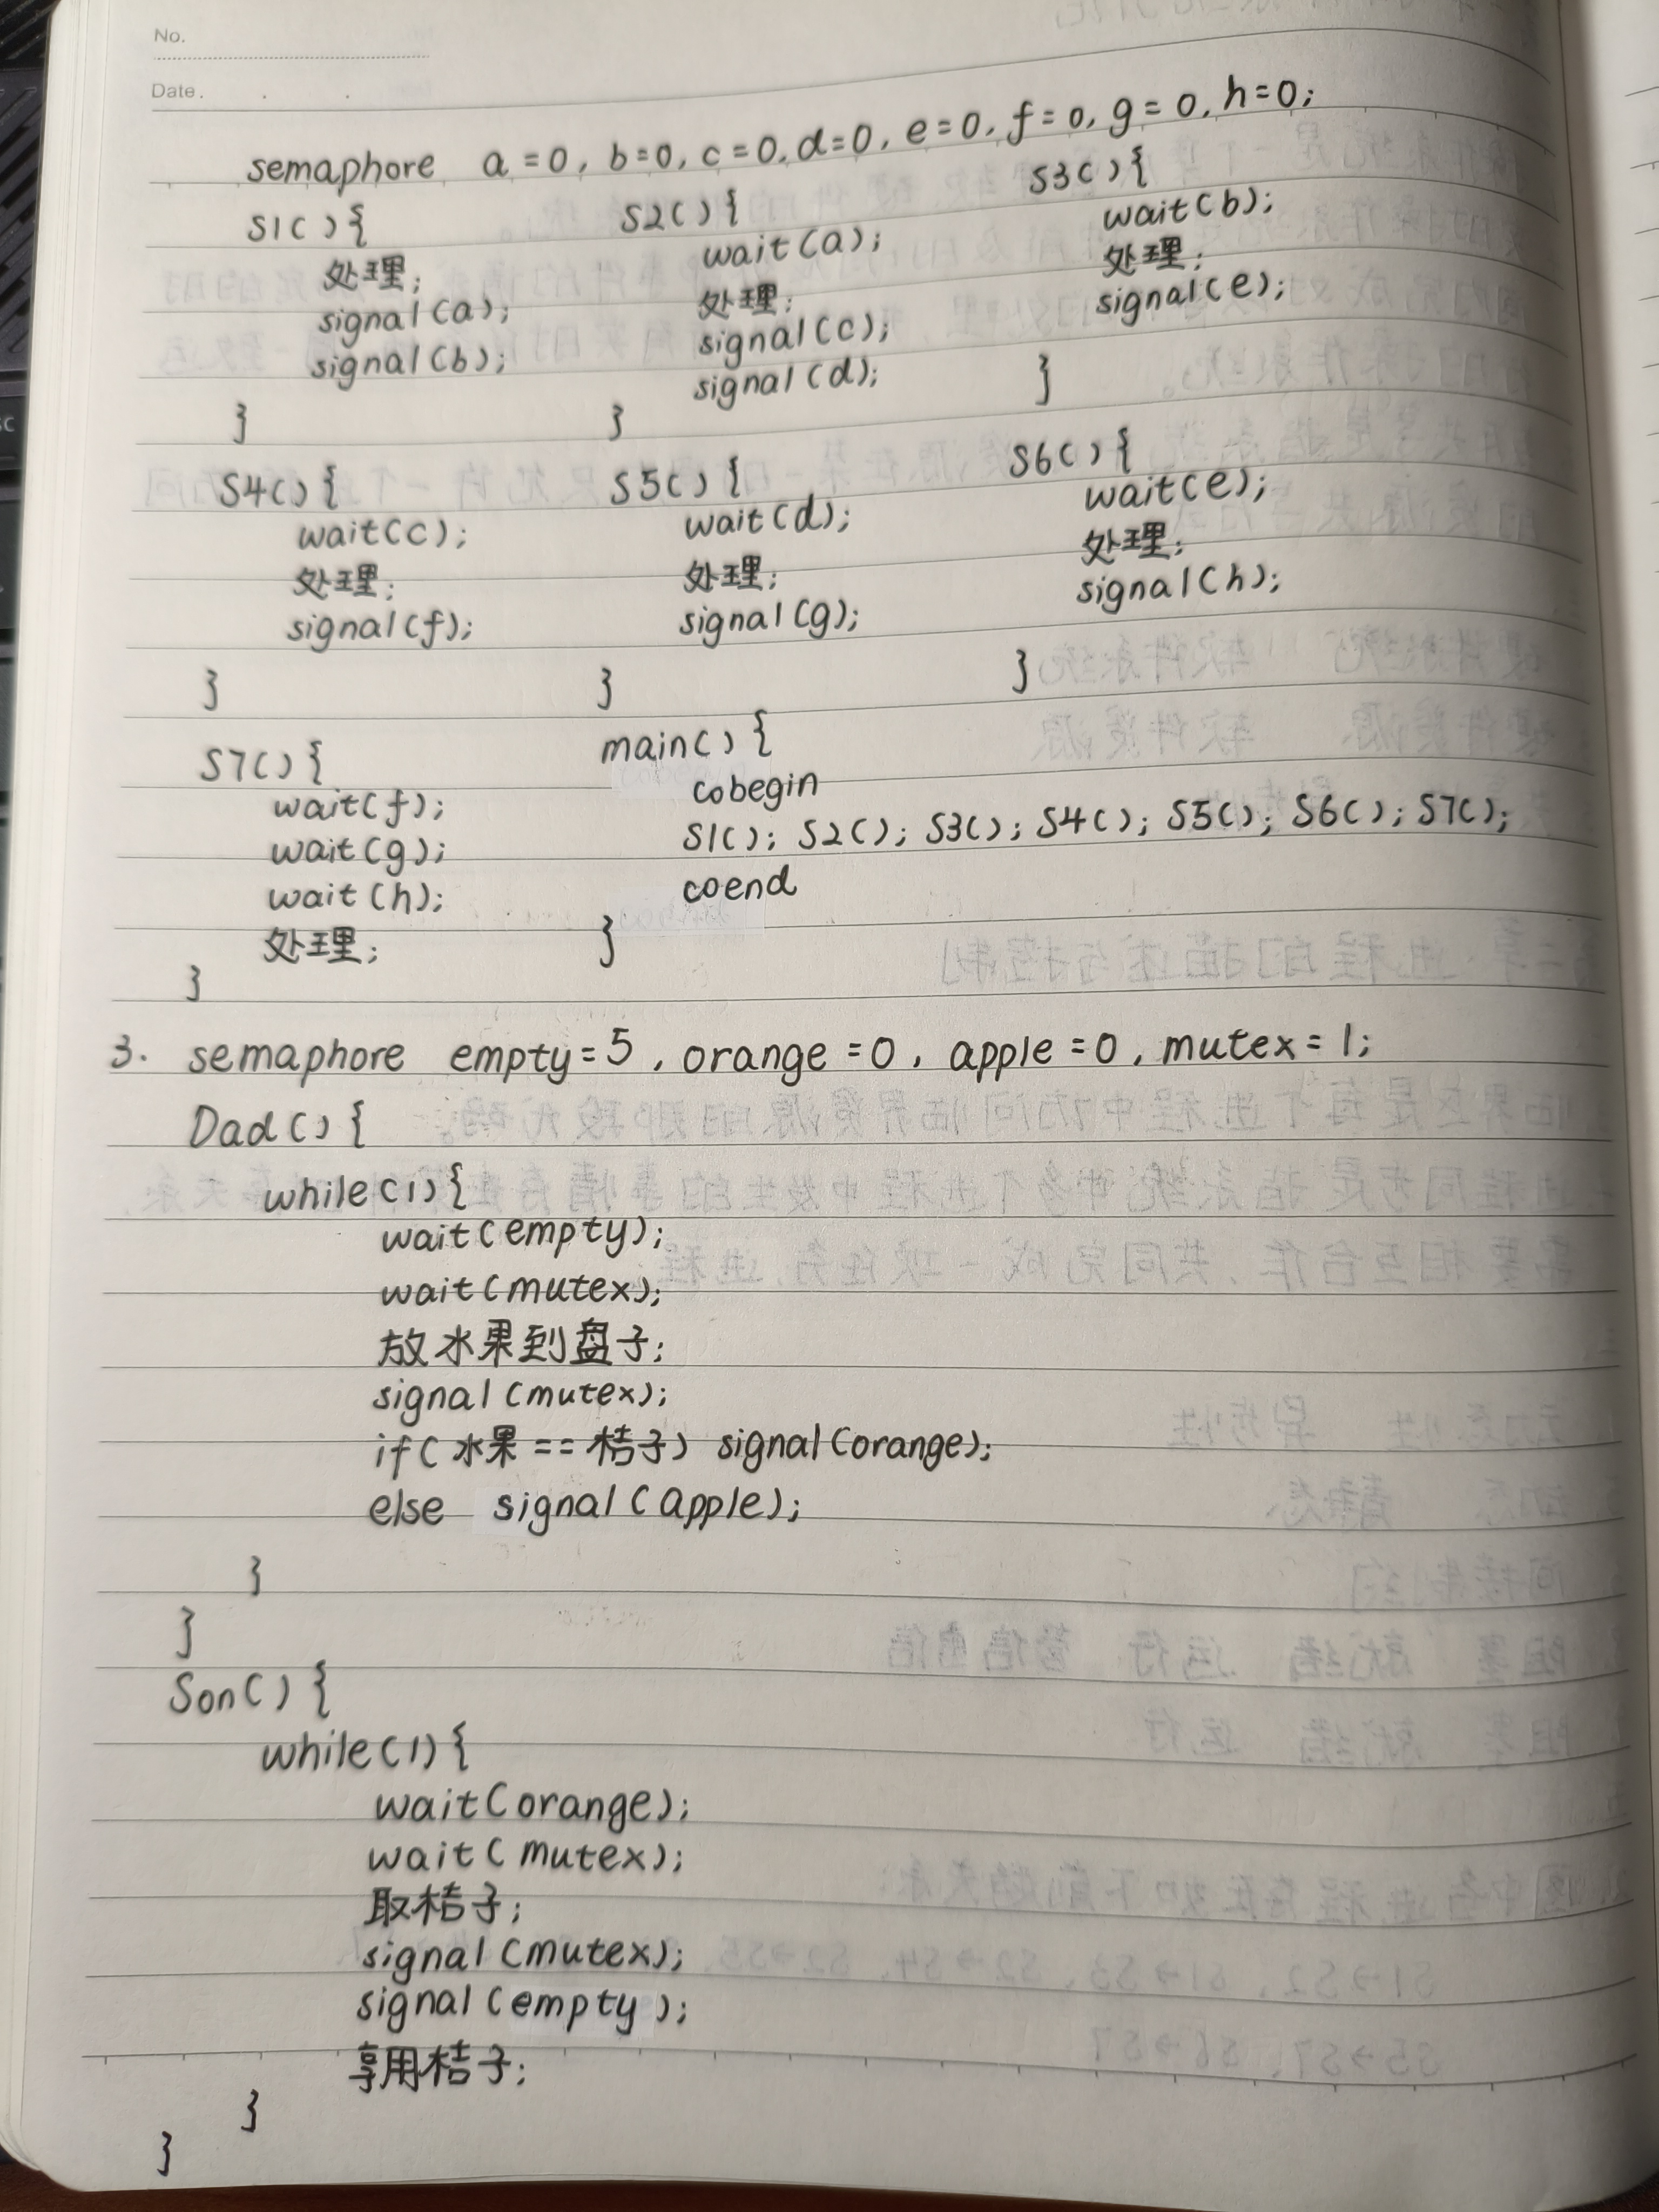 No.
Date.
semaphore a=0, b=0, c=0, d=0, e=0, f=0, g=0, h=0;
S1(){
处理;
signal(a);
signal(b);
}
S2(){
wait(a);
处理;
signal(c);
signal(d);
}
S3(){
wait(b);
处理;
signal(e);
}
S4(){
wait(c);
处理;
signal(f);
}
S5(){
wait(d);
处理;
signal(g);
}
S6(){
wait(e);
处理;
signal(h);
}
S7(){
wait(f);
wait(g);
wait(h);
处理;
}
main(){
cobegin
S1(); S2(); S3(); S4(); S5(); S6(); S7();
coend
}
3. semaphore empty=5, orange=0, apple=0, mutex=1;
Dad(){
while(1){
wait(empty);
wait(mutex);
放水果到盘子;
signal(mutex);
if(水果==桔子) signal(orange);
else signal(apple);
}
}
Son(){
while(1){
wait(orange);
wait(mutex);
取桔子;
signal(mutex);
signal(empty);
享用桔子;
}
}